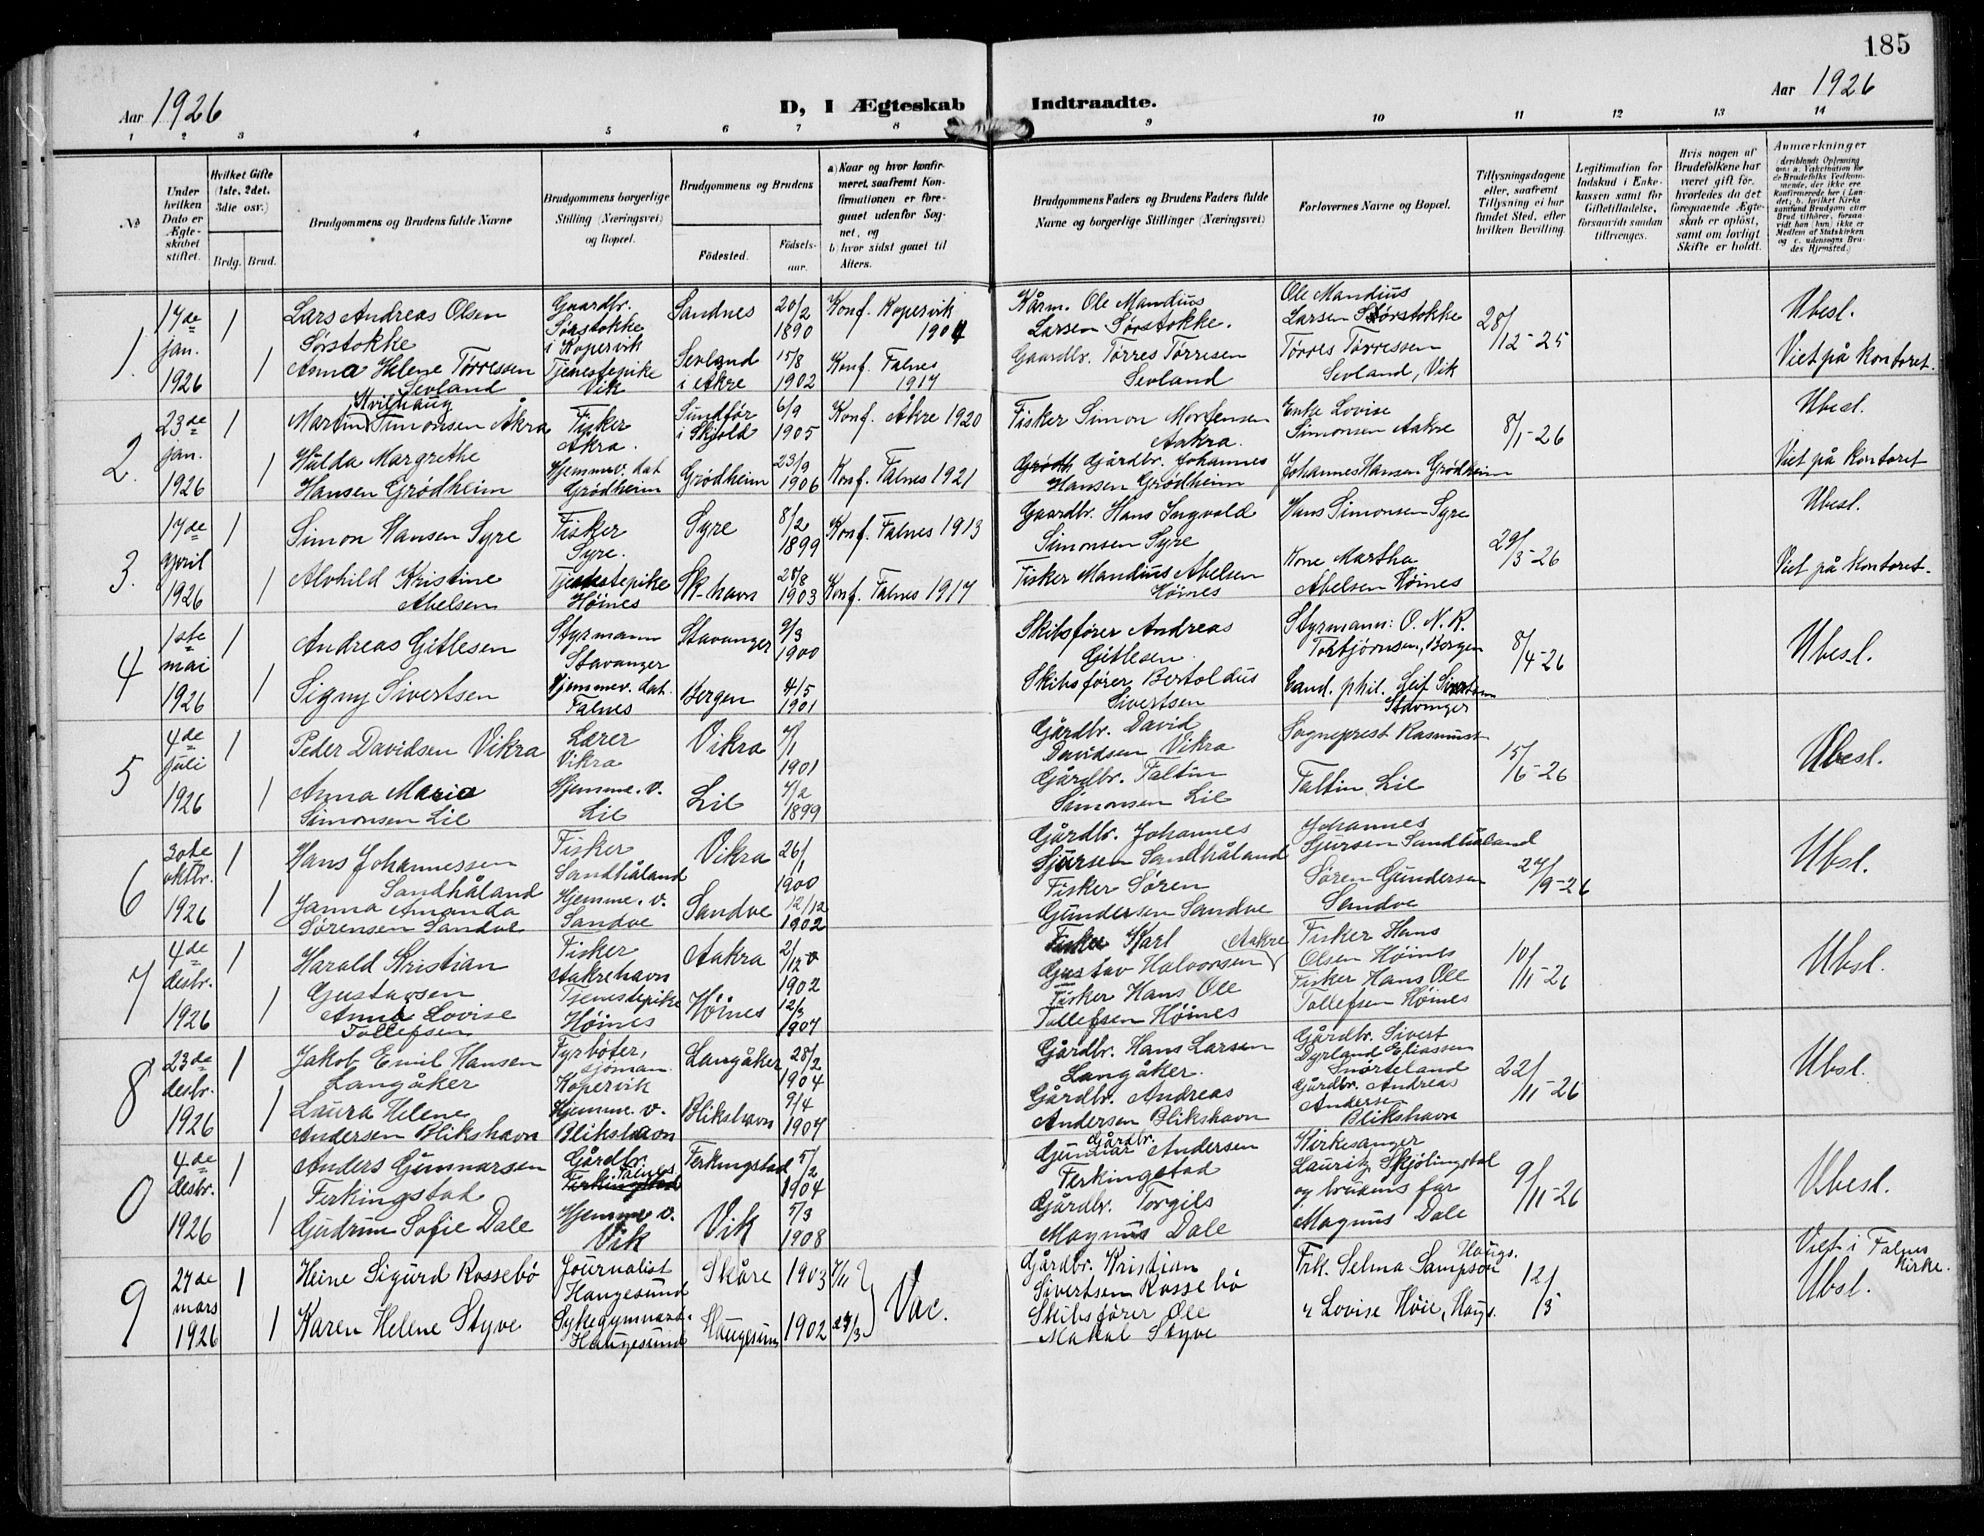 185
Aar 1926
D, I Ægteskab Indtraadte.
Aar 1926
1 2 3 4 5 6 7 8 9 10 11 12 13 14
№
Under hvilken Dato er Ægteskabet stiftet.
Hvilket Gifte (1ste, 2det, 3die osv.)
Brdg. Brud.
Brudgommens og Brudens fulde Navne
Brudgommens borgerlige Stilling (Næringsvei) og Bopæl.
Brudgommens og Brudens
Fødested.
Fødselsaar.
a) Naar og hvor konfirmeret, saafremt Konfirmationen er foregaaet udenfor Sognet, og
b) hvor sidst gaaet til Alters.
Brudgommens Faders og Brudens Faders fulde Navne og borgerlige Stillinger (Næringsvei)
Forlovernes Navne og Bopæl.
Tillysningsdagene eller, saafremt Tillysning ei har fundet Sted, efter hvilken Bevilling.
Legitimation for Indskud i Enkekassen samt for Giftetilladelse, forsaavidt saadan tiltrænges.
Hvis nogen af Brudefolkene har været gift før, hvorledes da det foregaaende Ægteskab er opløst, samt om lovligt Skifte er holdt.
Anmærkninger
1.
17de jan. 1926
1
Lars Andreas Olsen
Sørstokke
Gaardbr.
Sørstokke
i Kopervik
Sandnes
20/2 1890
Konf. Kopervik
1904
Kårm. Ole Mandius
Larsen Sørstokke.
Ole Mandius
Larsen Sørstokke
28/12-25
Ubesl.
1
Anna Helene Tørressen
Sevland
Tjenestepike
Vik
Sevland
i Akre
15/8 1902
Konf. Falnes
1917
Gaardbr. Tørres Tørresen
Sevland
Tørres Tørressen
Sevland, Vik
Viet på kontoret.
2.
23de jan. 1926
1
Kvilhaug
Martin Simonsen Åkra
Fisker
Akra.
Sundfør
i Skjold
6/9 1905
Konf. Åkre 1920
Fisker Simon Mortensen
Aakra.
Enke Lovise
Simonsen Aakre
8/1-26
Ubesl.
1
Hulda Margrethe
Hansen Grødheim
Hjemmev. dat
Grødheim
Grødheim
23/9 1906
Konf. Falnes 1921
Grødh. Gårdbr. Johannes
Hansen Grødheim
Johannes Hansen Grødheim
Viet på kontoret
3.
17de april 1926
1
Simon Hansen Syre
Fisker
Syre.
Syre
8/2 1899
Konf. Falnes 1913
Gaardbr. Hans Ingvald
Simonsen Syre
Hans Simonsen Syre
29/3-26
Ubesl.
1
Alvhild Kristine
Abelsen
Tjenestepike
Høines
Sk. havn
28/8 1903
Konf. Falnes 1917
Fisker Mandius Abelsen
Høines
Kone Martha
Abelsen Høines
Viet på kontoret.
4
1ste mai 1926
1
Andreas Gitlesen
Styrmann
Stavanger
Stavanger
9/3 1900
Skibsfører Andreas
Gitlesen.
Styrmann: O. N. R.
Torbjørnsen, Bergen
8/4-26
Ubesl.
1
Signy Sivertsen
Hjemmev. dat.
Falnes
Bergen
4/5 1901
Skibsfører Bertoldus
Sivertsen
Cand. phil. Leif Sivertsen
Stavanger
5
4de juli 1926
1
Peder Davidsen Vikra
Lærer
Vikra
Vikra
7/1 1901
Gårdbr. David
Davidsen Vikra
Sogneprest Rasmust
15/6-26
Ubesl.
1
Anna Maria
Simonsen Lie
Hjemme. v.
Lie
Lie
7/2 1899
Gårdbr. Faltin
Simonsen Lie
Faltin Lie
6
30te oktbr. 1926
1
Hans Johannessen
Sandhåland
Fisker
Sandhåland
Vikra
26/1 1900
Gårdbr. Johannes
Sjursen Sandhåland
Johannes
Sjursen Sandhåland
27/9-26
Ubsl.
1
Janna Amanda
Sørensen Sandve
Hjemme. v.
Sandve
Sandve
12/12 1902
Fisker Søren
Gundersen Sandve
Søren Gundersen
Sandve
7
4de desbr. 1926
1
Harald Kristian
Gustavsen
Fisker
Aakrehavn
Aakra
2/12 1902
Fisker Karl Aakre
Gustav Halvorsen
Fisker Hans
Olsen Høines
10/11-26
Ubsl.
1
Anna Lovise
Tollefsen
Tjenestepike
Høines
Høines
12/3 1907
Fisker Hans Ole
Tollefsen Høines
Fisker Hans Ole
Tollefsen Høines
8
23de desbr. 1926
1
Jakob Emil Hansen
Langåker
Fyrbøter,
sjømann
Kopervik
Langåker
28/2 1904
Gårdbr. Hans Larsen
Langåker.
Gårdbr. Sivert
Dyrland Eliassen
Snørteland
22/11-26
Ubsl.
1
Laura Helene
Andersen Blikshavn
Hjemme. v.
Blikshavn
Blikshavn
9/4 1907
Gårdbr. Andreas
Andersen Blikshavn
Gårdbr. Andreas
Andersen
Blikshavn
0
4de desbr. 1926
1
Anders Gunnarsen
Ferkingstad
Gårdbr.
Falnes
Ferkingstad
Ferkingstad
5/2 1904
Gårdbr.
Gunnar Andersen
Ferkingstad
Kirkesanger
Lauritz Skjølingstad
9/11-26
Ubesl.
1
Gudrun Sofie Dale
Hjemme v.
Vik
Vik
5/3 1908
Gårdbr. Torgils
Magnus Dale
og brudens far
Magnus Dale
9
27de mars 1926
1
Heine Sigurd Rossebø
Journalist
Haugesund
Skåre
1903 7/11
Vac.
Gårdbr. Kristian
Sivertsen Rossebø
Frk. Selma Sampson Haugs.
12/3
Viet i Falnes
Kirke.
Ubsl.
1
Karen Helene Styve
Sykegymnast.
Haugesund
Haugesund
1902 27/3
Skibsfører Ole
Makal Styve
" Lovise Høie, Haugs.